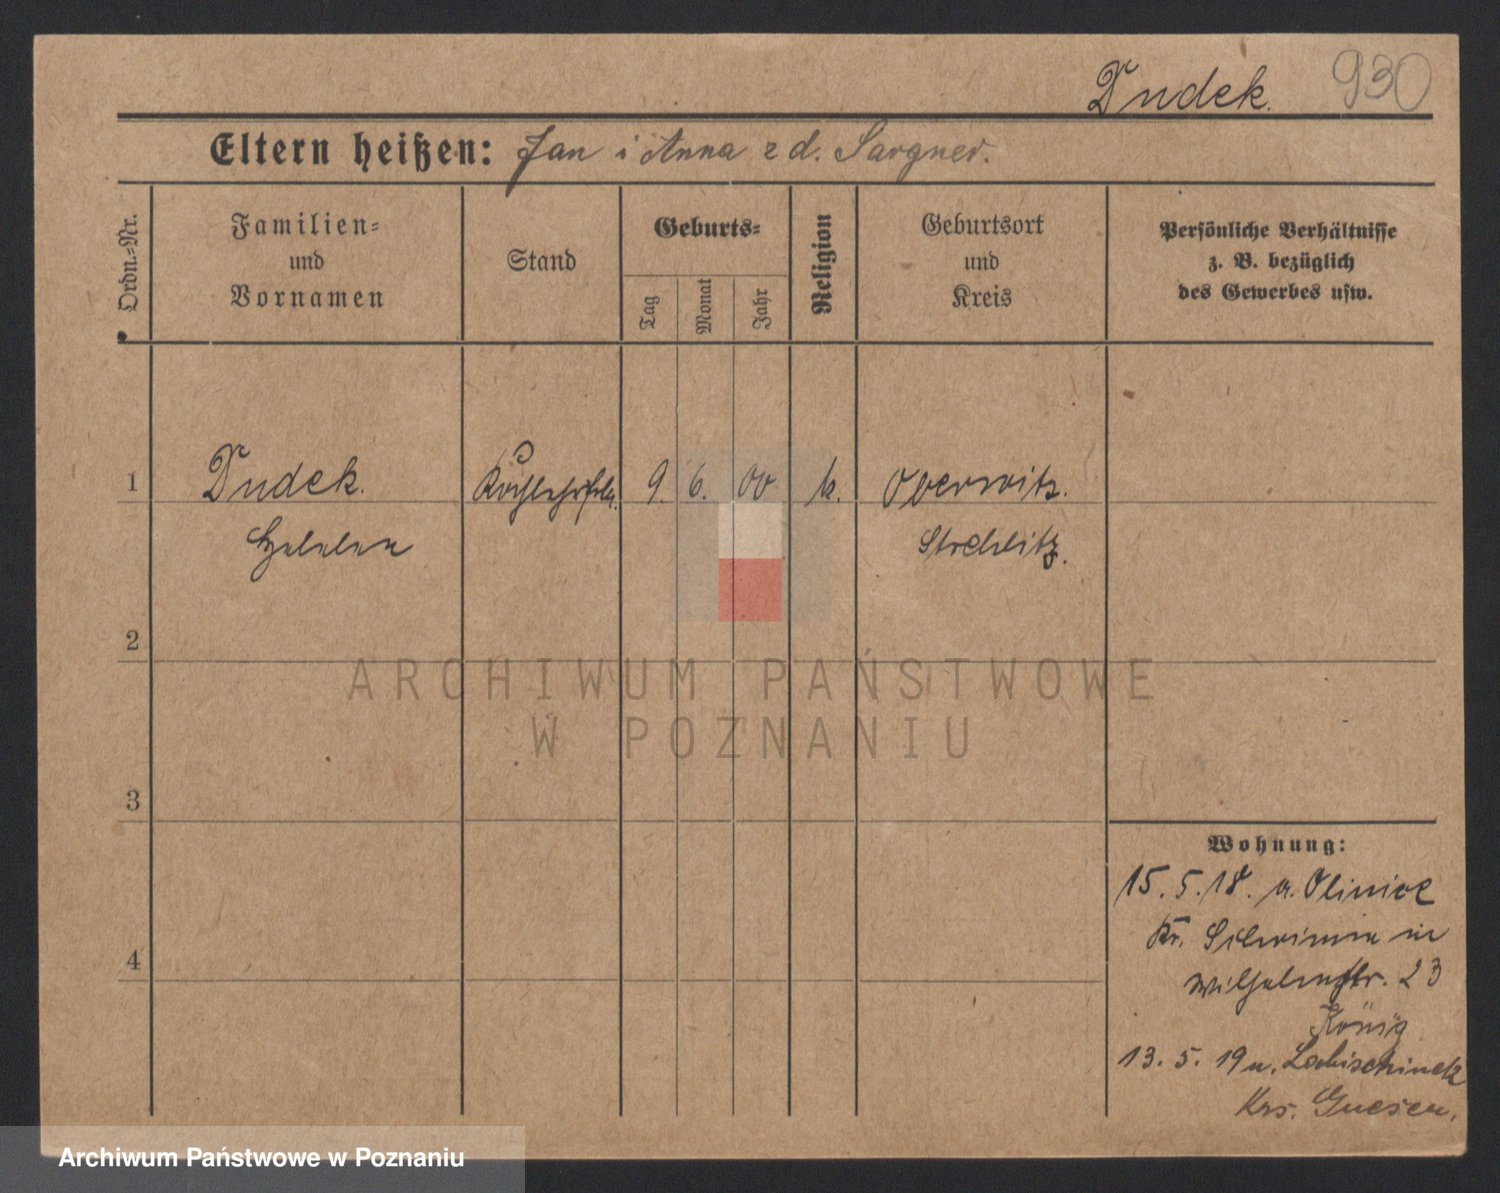 Dudek. 930
Eltern heißen: Jan i Anna z d. Sargner.
Ordn.=Nr.
Familien=
und
Vornamen
Stand
Geburts=
Tag
Monat
Jahr
Religion
Geburtsort
und
Kreis
Persönliche Verhältnisse
z. B. bezüglich
des Gewerbes usw.
1 Dudek. Kochlehrfrln. 9. 6. 00 k. Oberwitz.
Helene Strehlitz.
2
3
4
ARCHIWUM PAŃSTWOWE
W POZNANIU
Wohnung:
15. 5. 18. a.
Kr. in
Wilhelmstr. 23
König
13. 5. 19 n. Labischinek
Krs. Gnesen.
Archiwum Państwowe w Poznaniu